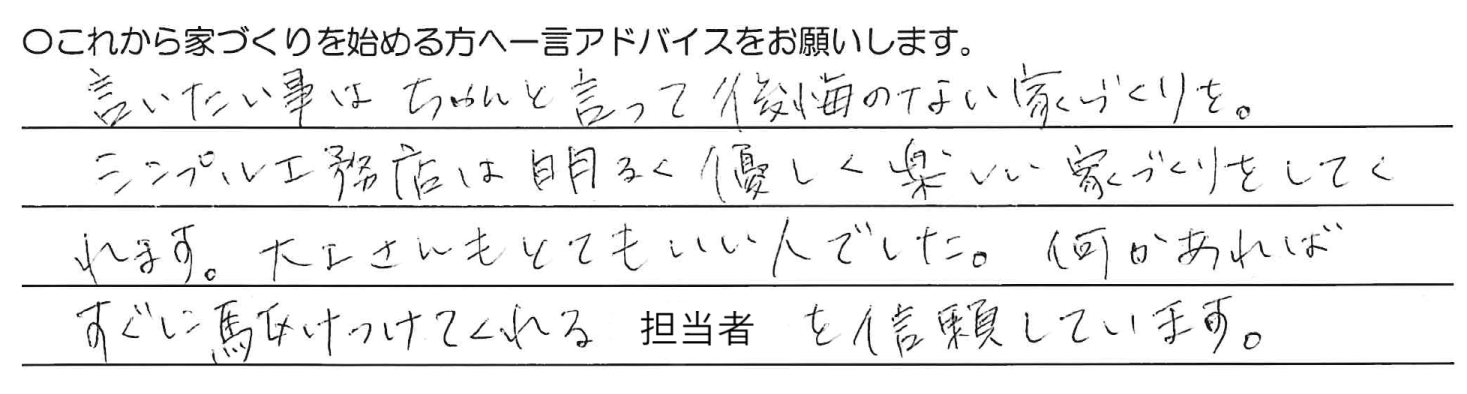 〇これから家づくりを始める方へ一言アドバイスをお願いします。
言いたい事は ちゃんと言って後悔のない家づくりを。
シンプル工務店は明るく優しく楽しい家づくりをしてく
れます。大工さんもとてもいい人でした。何かあれば
すぐに駆けつけてくれる 担当者 を信頼しています。